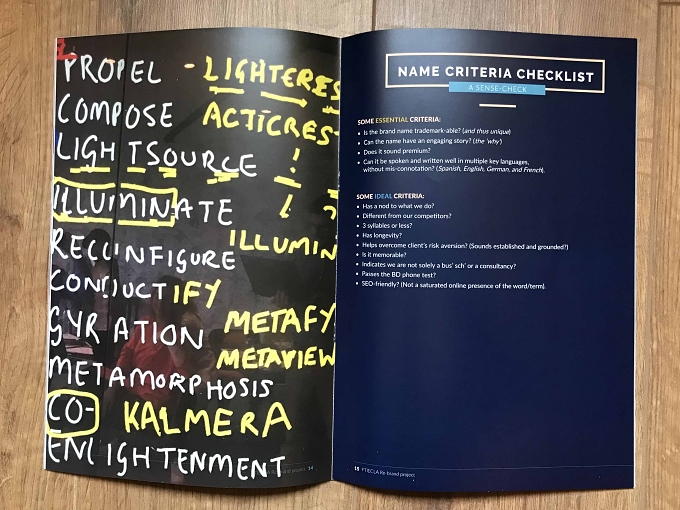 PROPEL - LIGHTCRES
COMPOSE ACTICRES
LIGHTSOURCE !
ILLUMINATE ! ?
RECONFIGURE ILLUMIN
CONDUCTIFY
GYRATION METAFY
METAVIEW
METAMORPHOSIS
CO- KALMERA
ENLIGHTENMENT
Re-brand project 14
NAME CRITERIA CHECKLIST
A SENSE-CHECK
SOME ESSENTIAL CRITERIA:
• Is the brand name trademark-able? (and thus unique)
• Can the name have an engaging story? (the 'why')
• Does it sound premium?
• Can it be spoken and written well in multiple key languages,
without mis-connotation? (Spanish, English, German, and French).
SOME IDEAL CRITERIA:
• Has a nod to what we do?
• Different from our competitors?
• 3 syllables or less?
• Has longevity?
• Helps overcome client's risk aversion? (Sounds established and grounded?)
• Is it memorable?
• Indicates we are not solely a bus' sch' or a consultancy?
• Passes the BD phone test?
• SEO-friendly? (Not a saturated online presence of the word/term).
15 FTIECLA Re-brand project